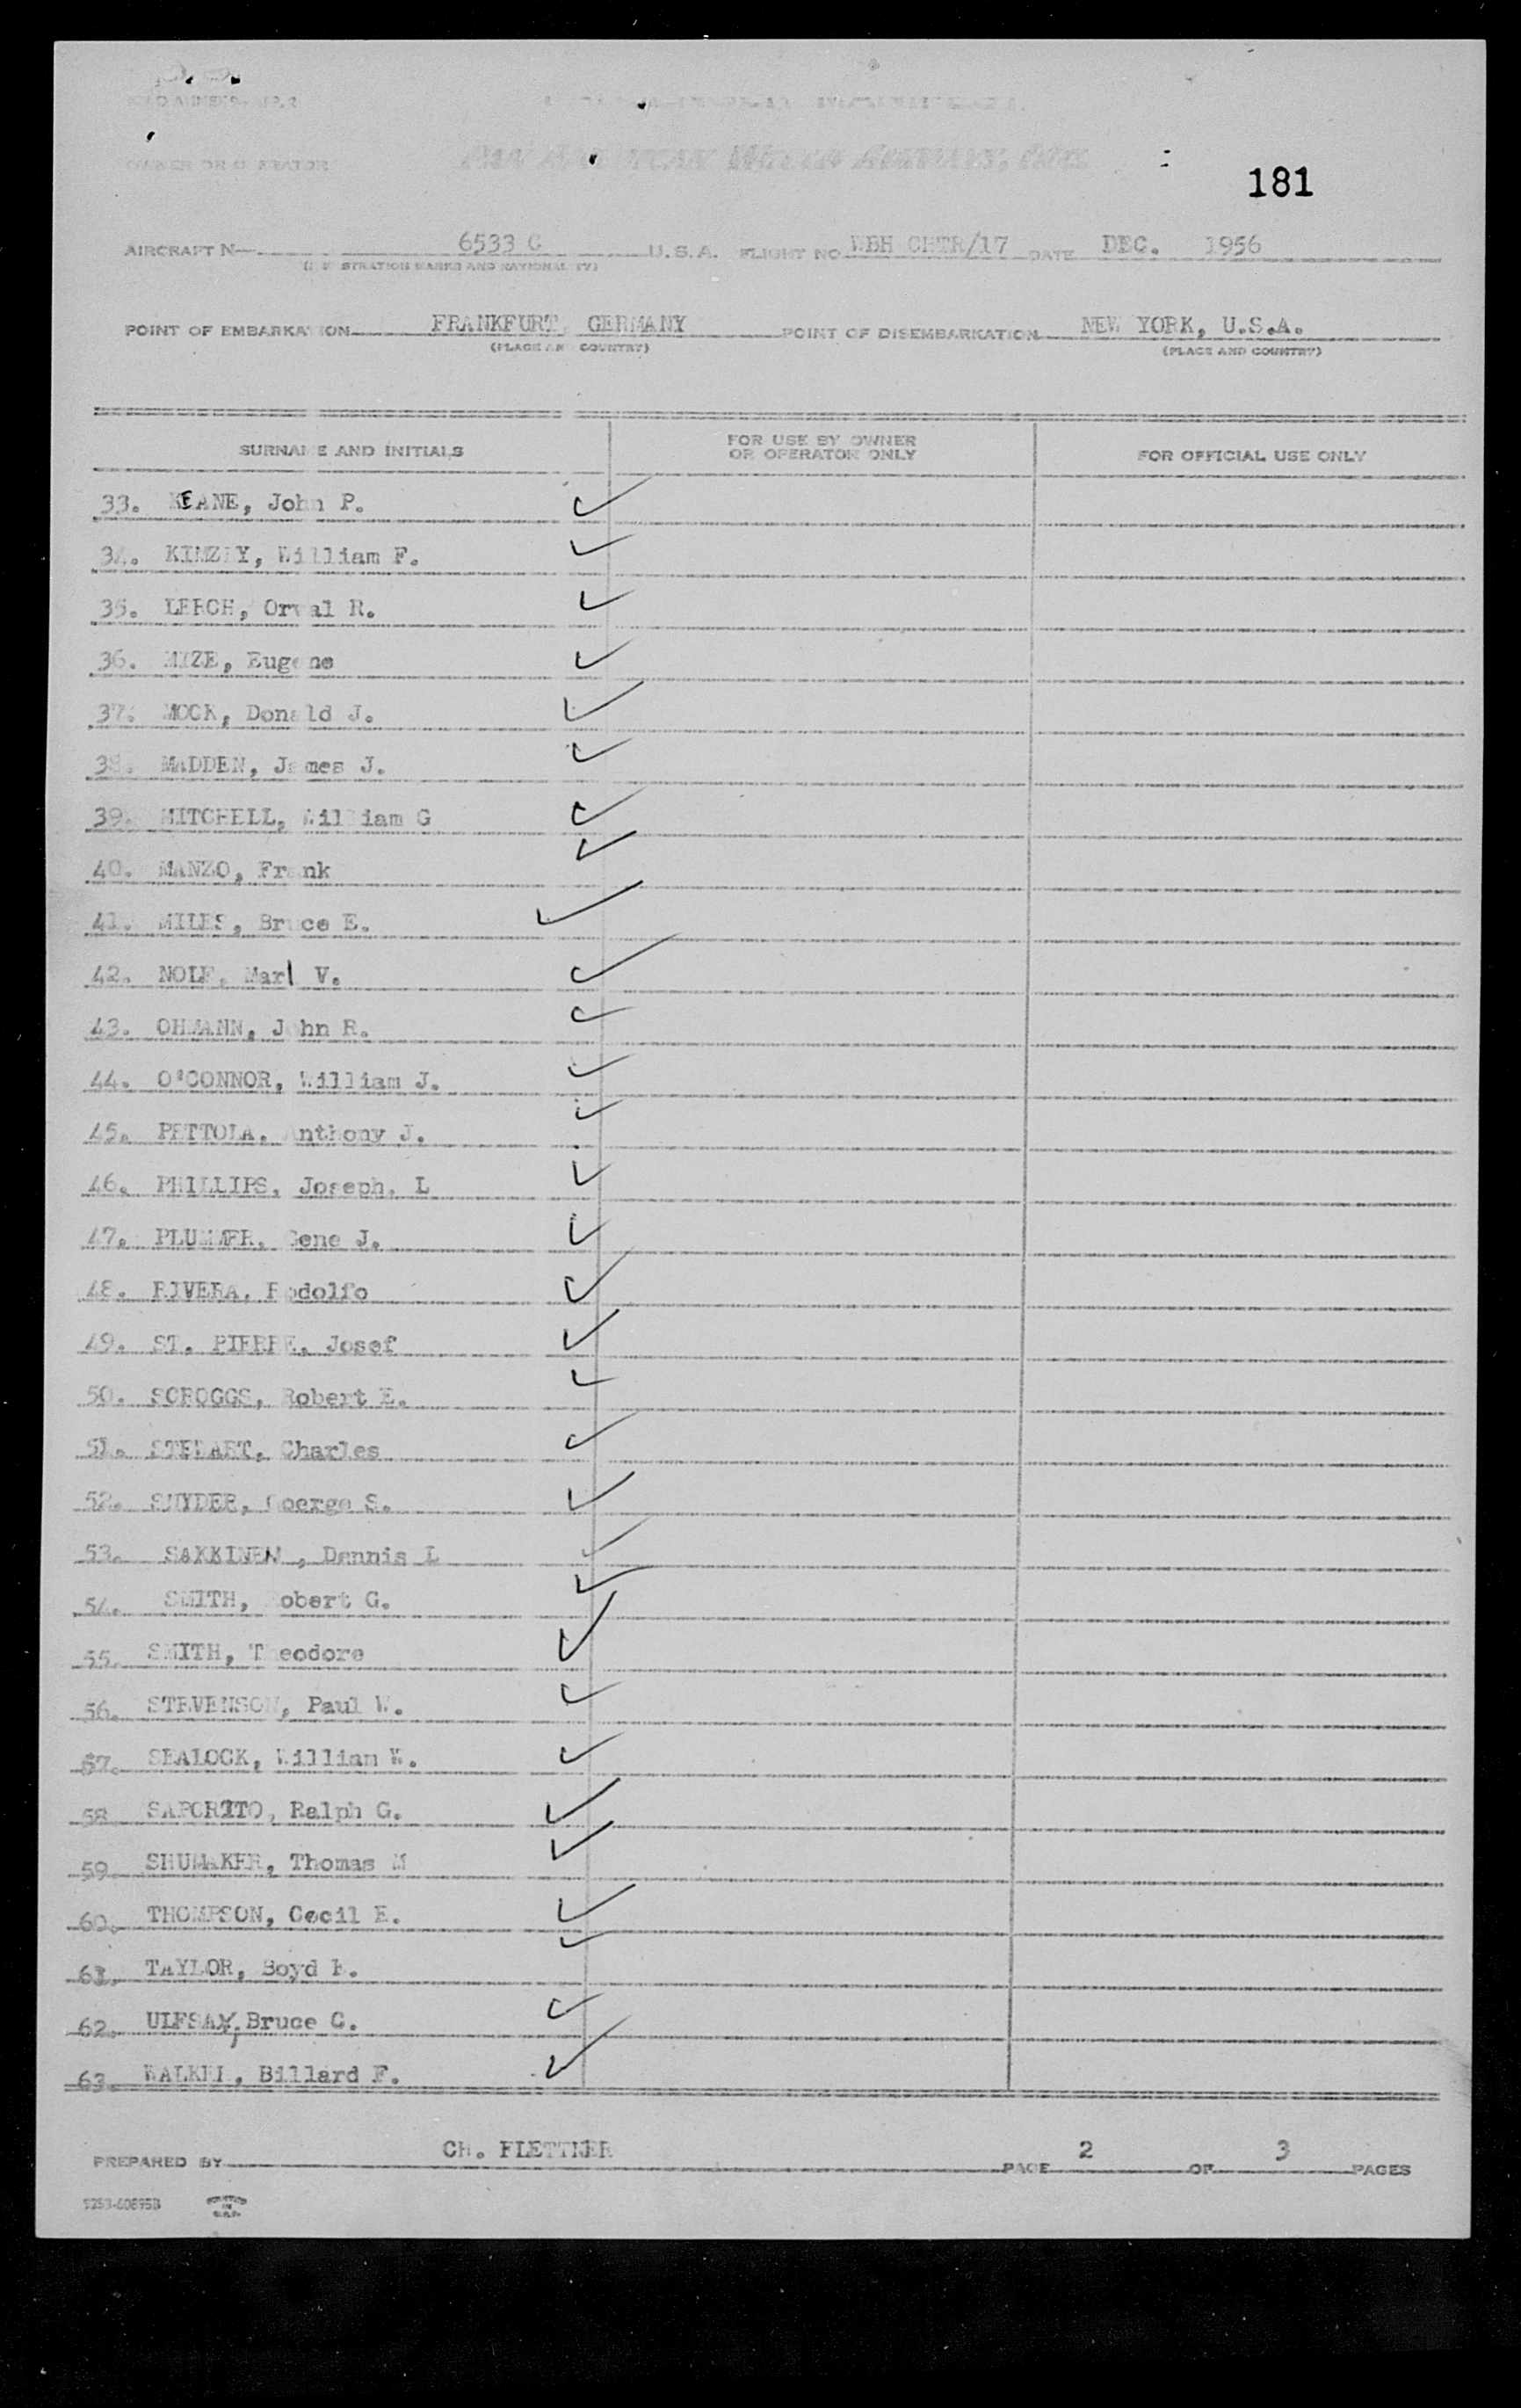 ICAO ANNEX 9-APP.2
OWNER OR OPERATOR
PAN AMERICAN WORLD AIRWAYS, INC.
181
AIRCRAFT N 6533 C U.S.A. FLIGHT NO. WBH CHTR/17 DATE DEC. 1956
(REGISTRATION MARKS AND NATIONALITY)
POINT OF EMBARKATION FRANKFURT, GERMANY POINT OF DISEMBARKATION NEW YORK, U.S.A.
(PLACE AND COUNTRY) (PLACE AND COUNTRY)
SURNAME AND INITIALS FOR USE BY OWNER OR OPERATOR ONLY FOR OFFICIAL USE ONLY
33. KEANE, John P.
34. KIMZEY, William F.
35. LERCH, Orval R.
36. MIZE, Eugene
37. MOCK, Donald J.
38. MADDEN, James J.
39. MITCHELL, William G
40. MANZO, Frank
41. MILES, Bruce E.
42. NOLF, Marl V.
43. OHMANN, John R.
44. O'CONNOR, William J.
45. PETTOLA, Anthony J.
46. PHILLIPS, Joseph, L
47. PLUMMER, Gene J.
48. RIVERA, Rodolfo
49. ST. PIERRE, Josef
50. SCROGGS, Robert E.
51. STEWART, Charles
52. SNYDER, Goerge S.
53. SAKKINEN, Dennis L
54. SMITH, Robert G.
55. SMITH, Theodore
56. STEVENSON, Paul W.
57. SEALOCK, William W.
58. SAPORITO, Ralph G.
59. SHUMAKER, Thomas M
60. THOMPSON, Cecil E.
61. TAYLOR, Boyd
62. ULFSAX, Bruce C.
63. WALKER, Billard F.
PREPARED BY CH. FLETTNER PAGE 2 OF 3 PAGES
PRINTED IN U.S.A.